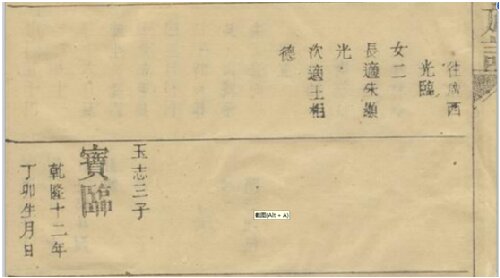 西
光臨
女二
長適朱顯
光
次適王相
德
玉志三子
寶臨
乾隆十二年
丁卯生月日
截图(Alt + A)